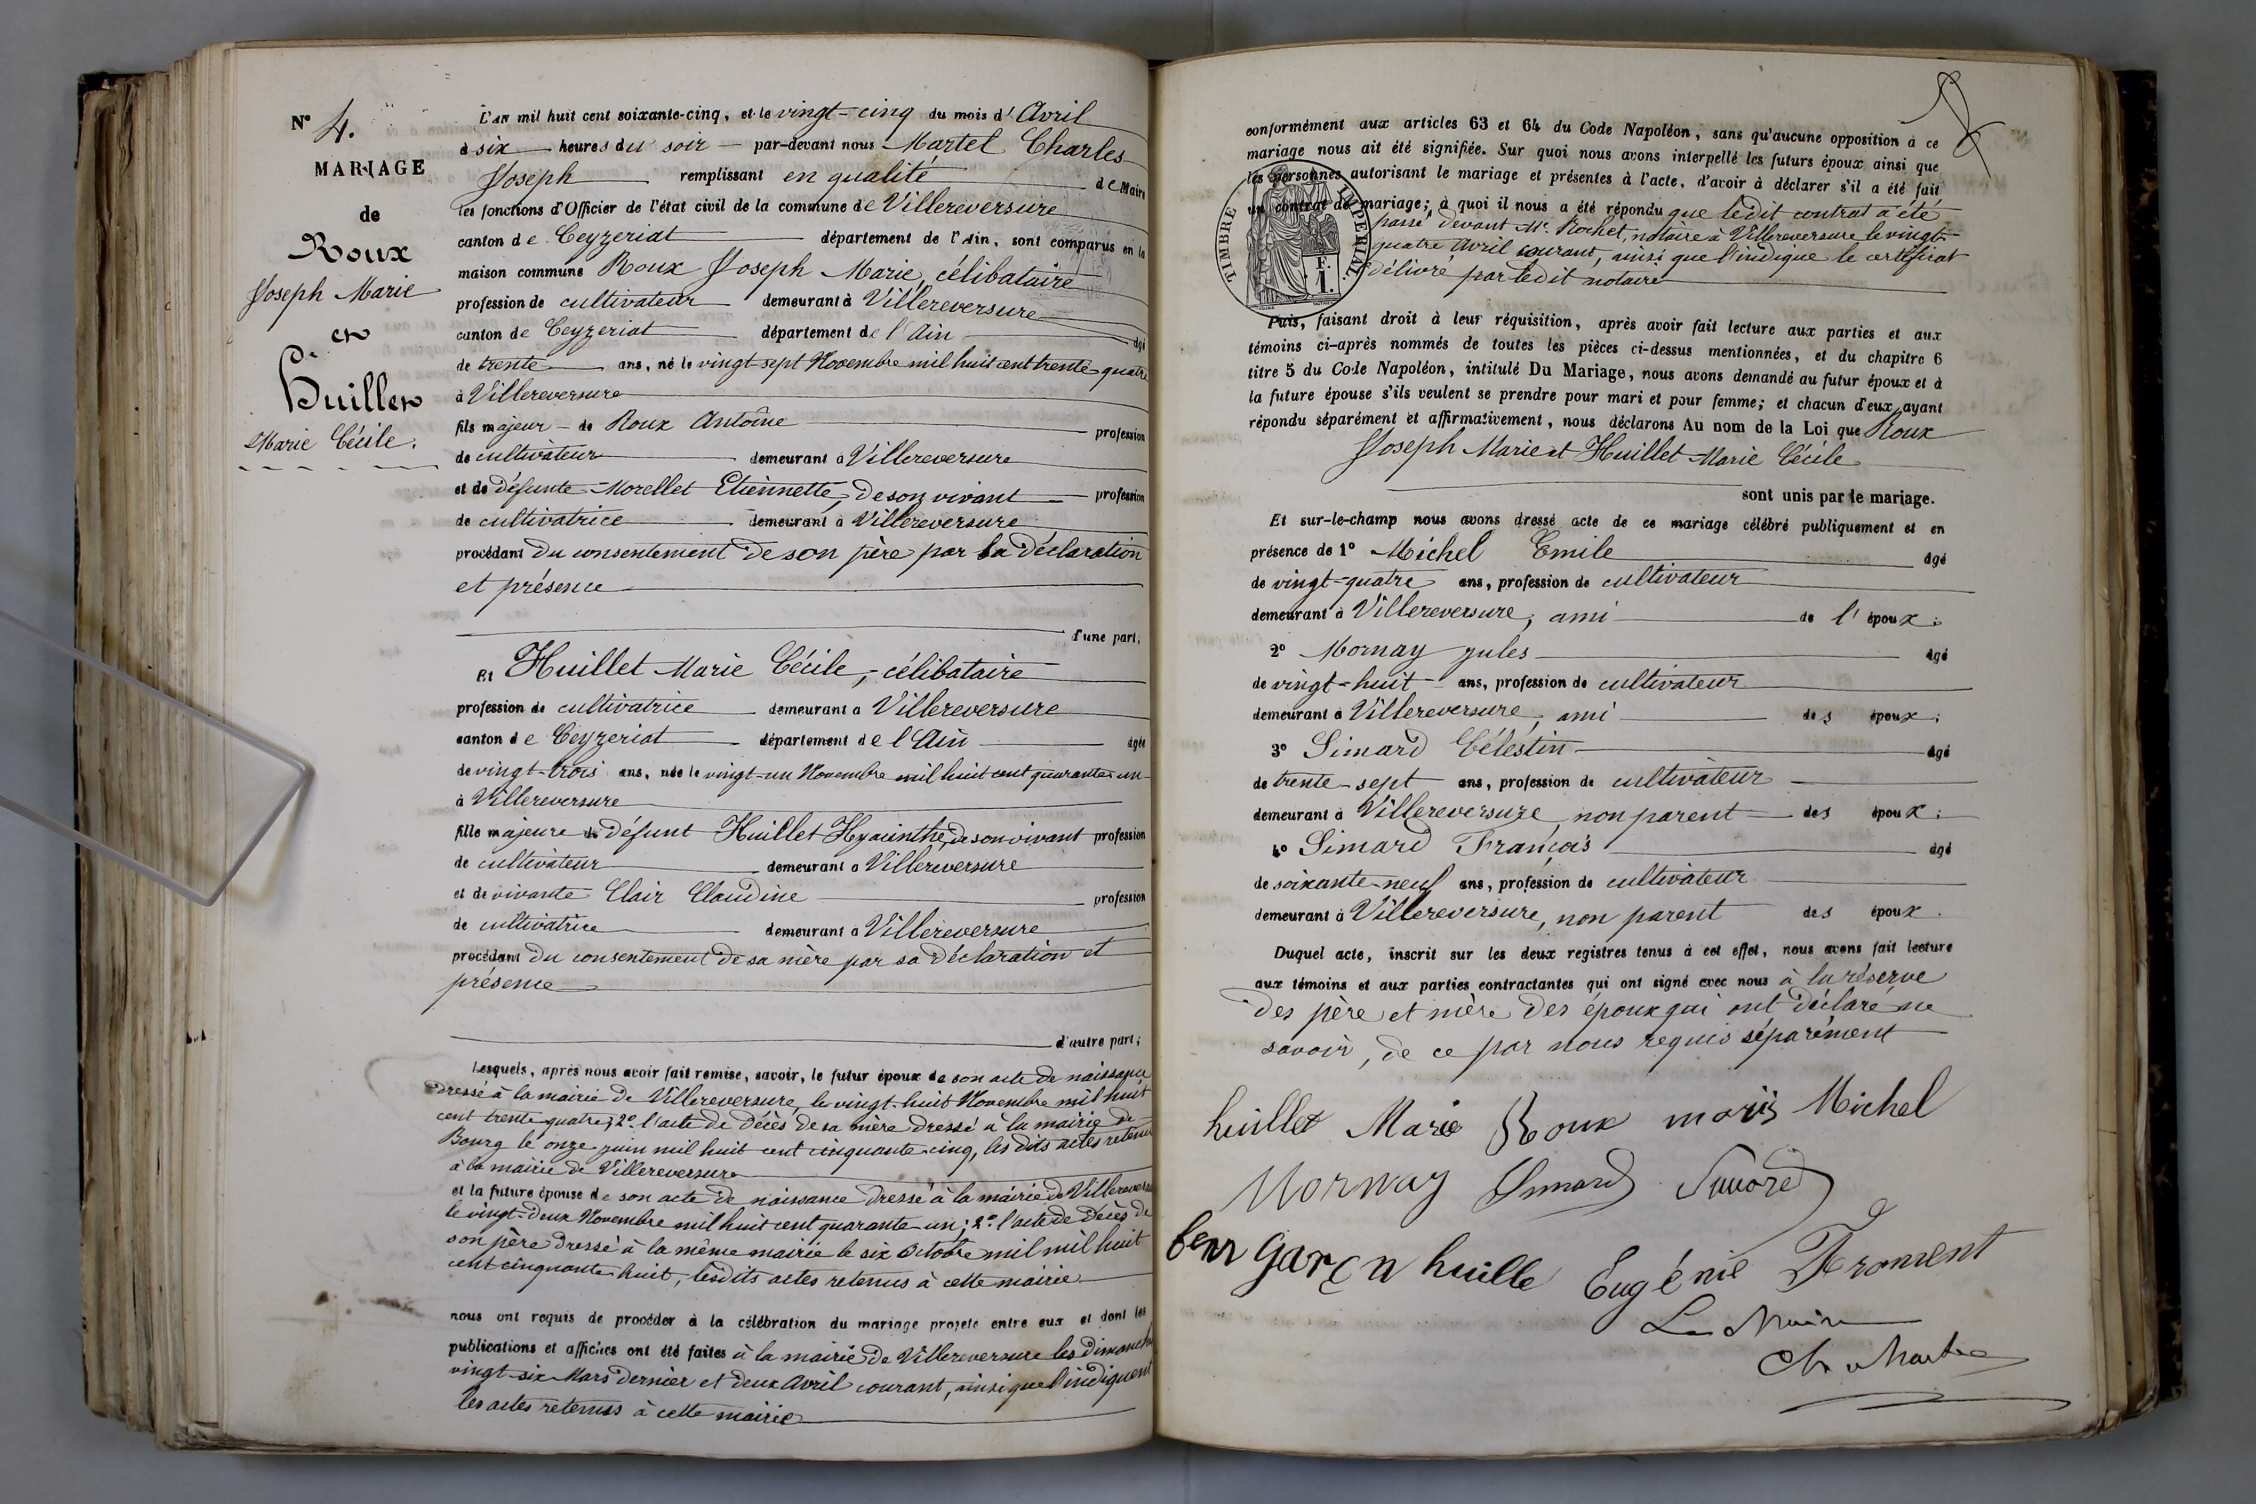 N° 4.
MARIAGE
de
Roux
Joseph Marie
et
Huillet
Marie Cécile.
L'an mil huit cent soixante-cinq, et le vingt-cinq du mois d'Avril
à six heures du soir par-devant nous Martel Charles
Joseph remplissant en qualité de Maire
les fonctions d'Officier de l'état civil de la commune de Villereversure
canton de Ceyzeriat département de l'Ain, sont comparus en la
maison commune Roux Joseph Marie, célibataire
profession de cultivateur demeurant à Villereversure
canton de Ceyzeriat département de l'Ain âgé
de trente ans, né le vingt-sept Novembre mil huit cent trente-quatre
à Villereversure
fils majeur de Roux Antoine profession
de cultivateur demeurant à Villereversure
et de défunte Morellet Etiennette, de son vivant profession
de cultivatrice demeurant à Villereversure
procédant du consentement de son père par la déclaration
et présence
d'une part;
Et Huillet Marie Cécile, célibataire
profession de cultivatrice demeurant à Villereversure
canton de Ceyzeriat département de l'Ain âgée
de vingt-trois ans, née le vingt-un Novembre mil huit cent quarante-un
à Villereversure
fille majeure de défunt Huillet Hyacinthe, de son vivant profession
de cultivateur demeurant à Villereversure
et de vivante Clair Claudine profession
de cultivatrice demeurant à Villereversure
procédant du consentement de sa mère par sa déclaration et
présence
d'autre part;
Lesquels, après nous avoir fait remise, savoir, le futur époux de son acte de naissance
dressé à la mairie de Villereversure, le vingt-huit Novembre mil huit
cent trente-quatre; 2° l'acte de décès de sa mère dressé à la mairie de
Bourg le onze juin mil huit cent cinquante-cinq, les dits actes retenus
à la mairie de Villereversure
et la future épouse de son acte de naissance dressé à la mairie de Villereversure
le vingt-deux Novembre mil huit cent quarante-un; 2° l'acte de décès de
son père dressé à la même mairie le six Octobre mil mil huit
cent cinquante huit, lesdits actes retenus à cette mairie
nous ont requis de procéder à la célébration du mariage projeté entre eux et dont les
publications et affiches ont été faites à la mairie de Villereversure les dimanches
vingt-six Mars dernier et deux Avril courant, ainsi que l'indiquent
les actes retenus à cette mairie
conformément aux articles 63 et 64 du Code Napoléon, sans qu'aucune opposition à ce
mariage nous ait été signifiée. Sur quoi nous avons interpellé les futurs époux ainsi que
les personnes autorisant le mariage et présentes à l'acte, d'avoir à déclarer s'il a été fait
un contrat de mariage; à quoi il nous a été répondu que ledit contrat a été
passé devant Me. Rochet, notaire à Villereversure le vingt-
quatre Avril courant, ainsi que l'indique le certificat
délivré par ledit notaire
TIMBRE IMPERIAL.
F.
1.
Puis, faisant droit à leur réquisition, après avoir fait lecture aux parties et aux
témoins ci-après nommés de toutes les pièces ci-dessus mentionnées, et du chapitre 6
titre 5 du Code Napoléon, intitulé Du Mariage, nous avons demandé au futur époux et à
la future épouse s'ils veulent se prendre pour mari et pour femme; et chacun d'eux ayant
répondu séparément et affirmativement, nous déclarons Au nom de la Loi que Roux
Joseph Marie et Huillet Marie Cécile
sont unis par le mariage.
Et sur-le-champ nous avons dressé acte de ce mariage célébré publiquement et en
présence de 1° Michel Emile âgé
de vingt-quatre ans, profession de cultivateur
demeurant à Villereversure, ami de l'époux;
2° Mornay Jules âgé
de vingt-huit ans, profession de cultivateur
demeurant à Villereversure, ami des époux;
3° Simard Célestin âgé
de trente-sept ans, profession de cultivateur
demeurant à Villereversure, non parent des époux;
4° Simard François âgé
de soixante-neuf ans, profession de cultivateur
demeurant à Villereversure, non parent des époux.
Duquel acte, inscrit sur les deux registres tenus à cet effet, nous avons fait lecture
aux témoins et aux parties contractantes qui ont signé avec nous à la réserve
des père et mère des époux qui ont déclaré ne
savoir, de ce par nous requis séparément
huillet Marie Roux Michel
Mornay Simard
huille Eugénie Froment
Le Maire
Ch. Martel